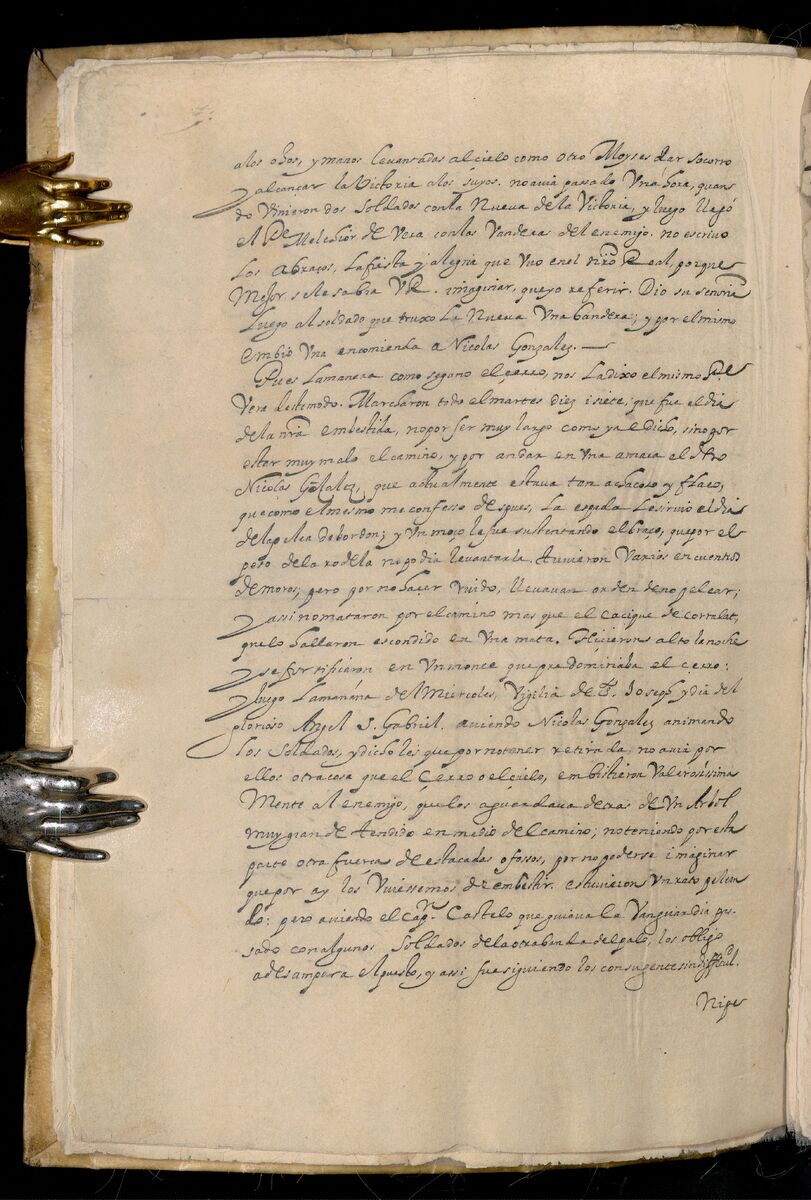 alos ojos, y manos levantadas al cielo como otro Moyses dar socorro
y alcançar la Victoria alos suyos. no avia passado Una hora, quan
do Vinieron dos Soldados con la Nueva de la Victoria, y luego llegó
el Pe Melchior de Vera con las Vanderas del enemigo. no escrivo
los abraços, la fiesta y alegria que Vuo en el nro Real, porque
Mejor se le sabra VR. imaginar, que yo referir. Dio su señoria
luego al soldado que truxo la Nueva Una bandera; y por el mismo
embio Una encomienda a Nicolas Gonzalez.
Pues la manera como se gano el çerro, nos la dixo el mismo Pe
Vera deste modo. Marcharon todo el martes diez i siete, que fue el dia
de la nra embestida, no por ser muy largo como ya e dicho, sino por
estar muy malo el camino, y por andar en Una amaca el dho
Nicolas Gonzalez, que actualmente estava tan achacoso y flaco,
que como el mesmo me confesso despues, la espada le sirvio el dia
de la pelea de bordon; y Un moço le fue sustentando el braço, que por el
peso de la rodela no podia levantarla. tuvieron Varios encuentros
de moros; pero por no hazer ruido, llevavan orden de no pelear;
y assi no mataron por el camino mas que el cacique de corralat,
que lo hallaron escondido en Una mata. Hicieron alto la noche
y se fortificaron en Un monte que predominaba el cerro:
y luego la mañana del Miercoles, Vigilia de S. Joseph y dia del
glorioso Angel S. Gabriel. aviendo Nicolas Gonzalez animando
los Soldados, y dicholes que por no tener retirada, no avia por
ellos otra cosa que el Cerro o el cielo, embistieron Valerosissima
Mente al enemigo, que los aguardava detras de Un Arbol
muy grande tendido en medio del camino; no teniendo por esta
parte otra fuerça de estacadas o fossos, por no poderse imaginar
que por ay los Viniessemos de embestir. estuvieron Un rato pelean
do: pero aviendo el capn Castelo que guiava la Vanguardia pa-
sado con algunos Soldados de la otra banda del palo, los obligo
a desampara el puesto, y assi fue siguiendo los con su gente sin dificul.